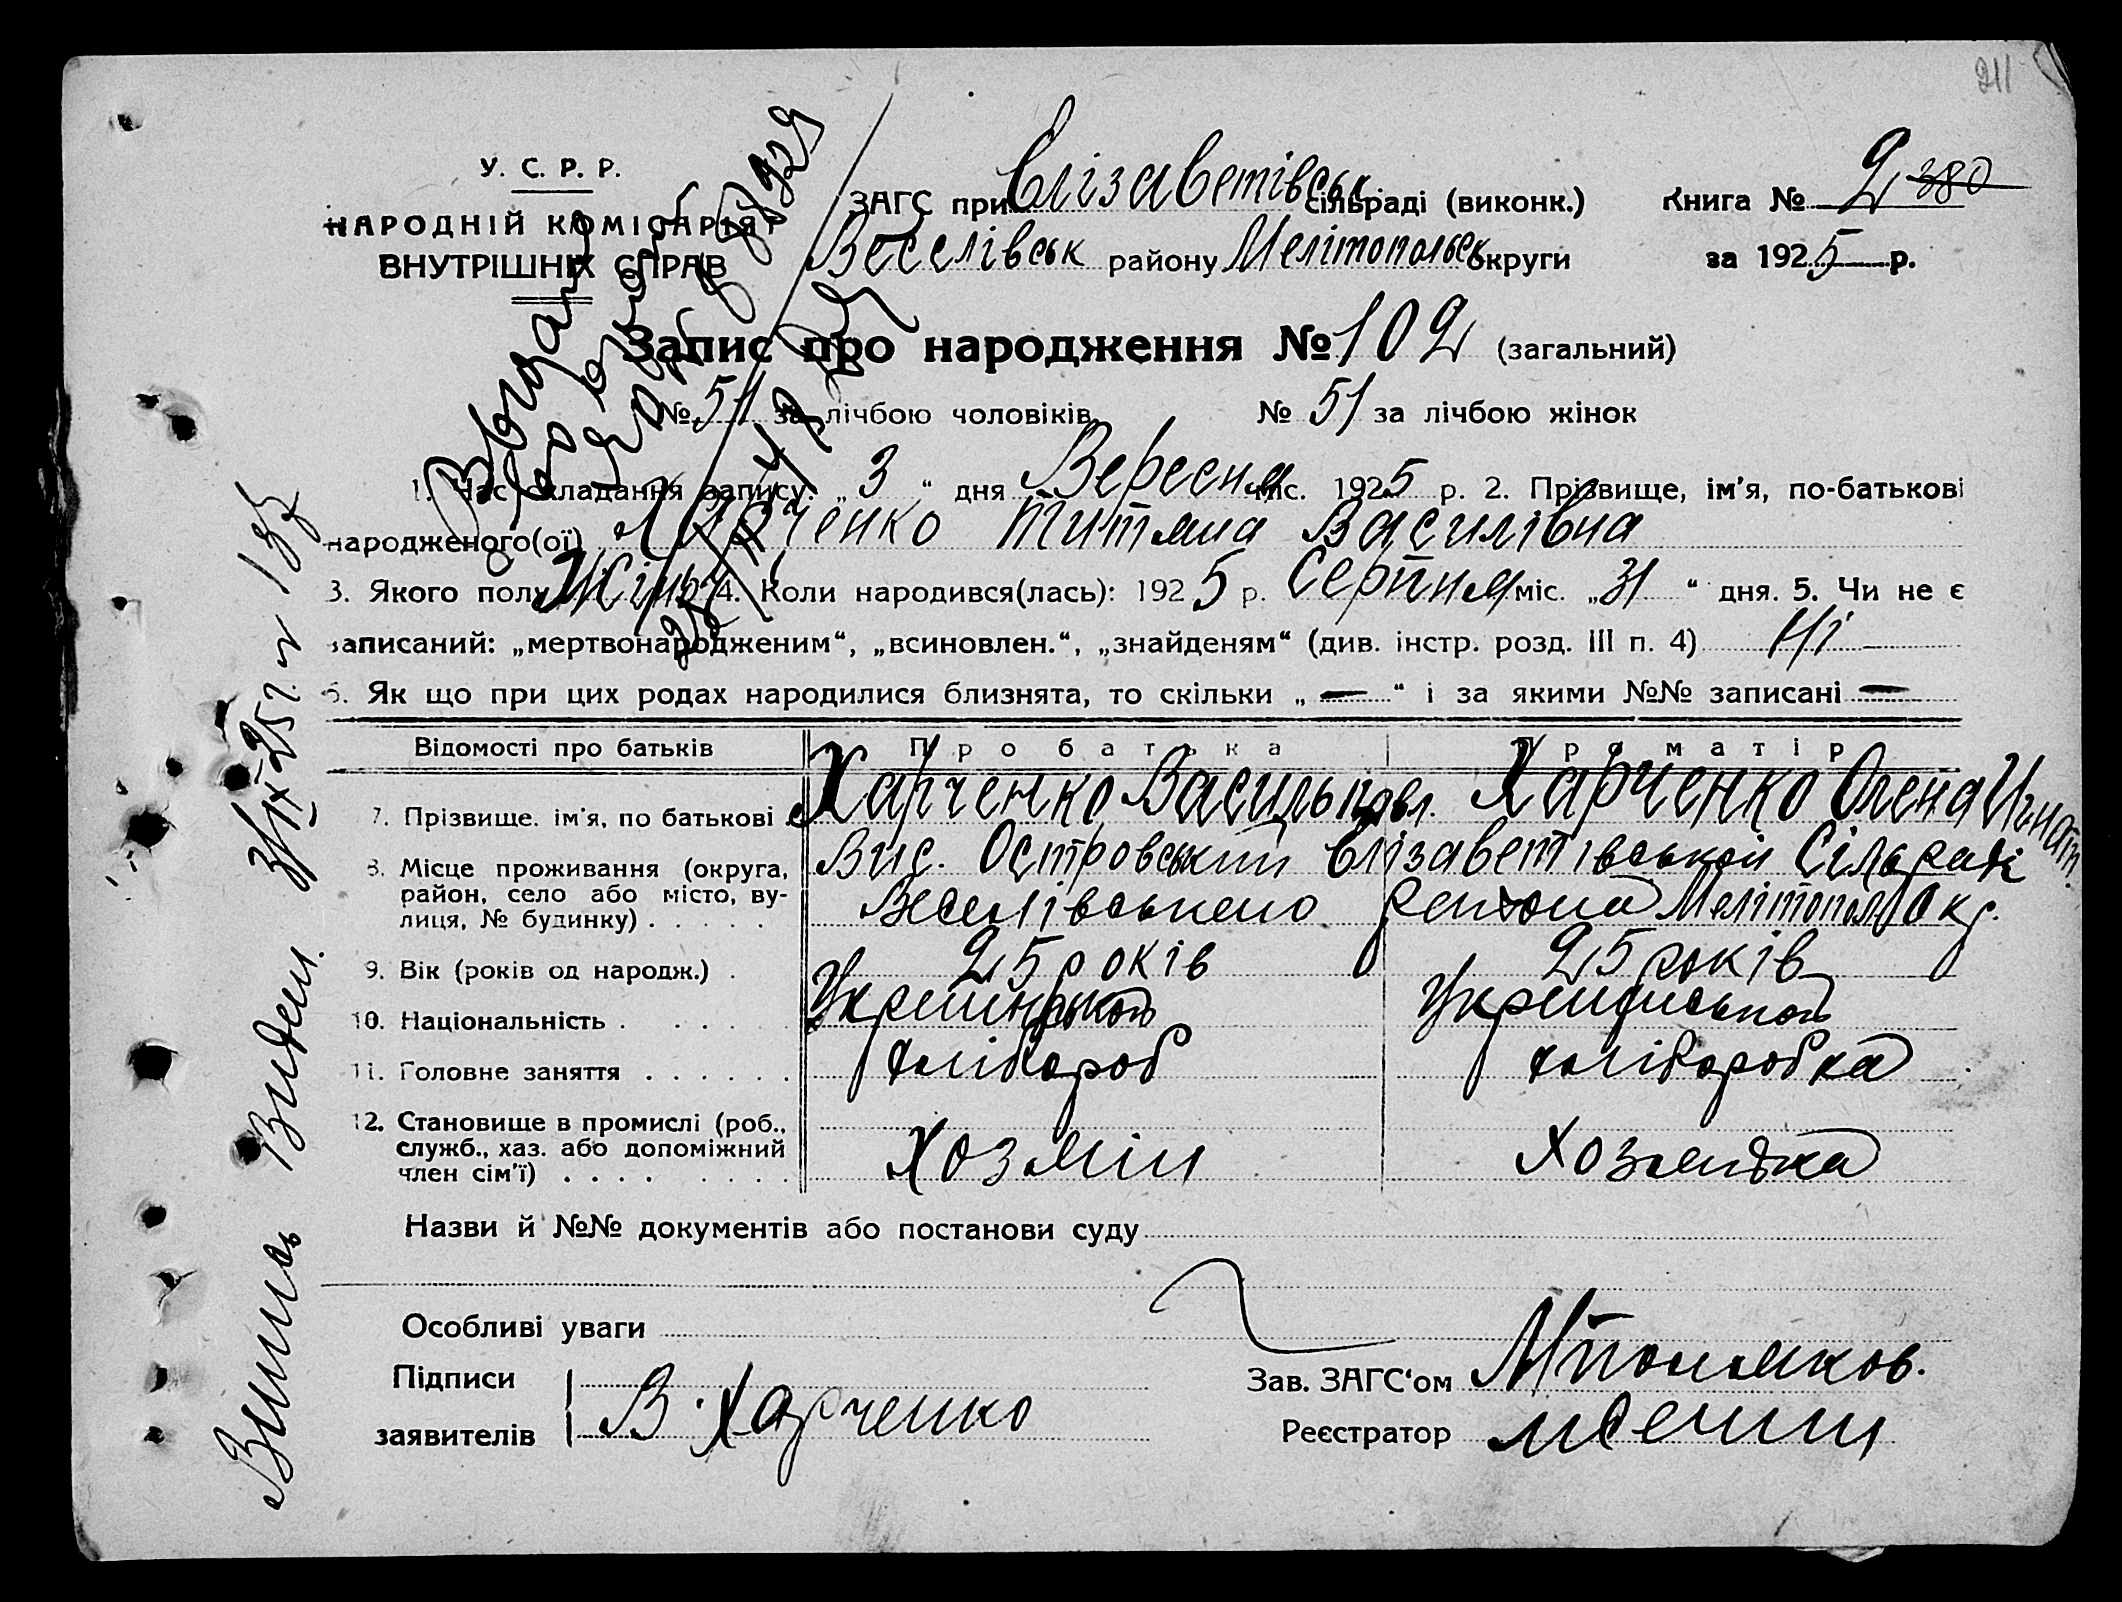 211
У. С. Р. Р.
НАРОДНІЙ КОМІСАРІЯТ
ВНУТРІШНІХ СПРАВ
ЗАГС при Єлізаветівськ сільраді (виконк.) Книга № 2 380
Веселівськ району Мелітопольськ округи за 1925 р.
Запис про народження № 102 (загальний)
№ 51 за лічбою чоловіків № 51 за лічбою жінок
1. Час складання запису: „ 3 “ дня Вересня міс. 1925 р. 2. Прізвище, ім'я, по-батькові
народженого(ої) Харченко Титяна Василівна
3. Якого полу Жіноч 4. Коли народився(лась): 1925 р. Серпня міс. „ 31 “ дня. 5. Чи не є
записаний: „мертвонародженим“, „всиновлен.“, „знайденям“ (див. інстр. розд. III п. 4) Ні
6. Як що при цих родах народилися близнята, то скільки „ — “ і за якими №№ записані —
Відомості про батьків Про батька Про матір
7. Прізвище, ім'я, по батькові Харченко Василь Павл. Харченко Олена Игнатт.
8. Місце проживання (округа, Вис. Островський Єлізаветівської Сільради
район, село або місто, ву- Веселівського району Мелітополь Окр.
лиця, № будинку) . . . . .
9. Вік (років од народж.) . 25 років 25 років
10. Національність . . . . . Українськой Українськой
11. Головне заняття . . . . . . Хлібороб Хліборобка
12. Становище в промислі (роб.,
служб., хаз. або допоміжний Хозяїн Хозяйка
член сім'ї) . . . . . . . .
Назви й №№ документів або постанови суду
Особливі уваги
Підписи Зав. ЗАГС'ом М Поляков.
заявителів В. Харченко Реєстратор
Випись Видан. 3/IX 25 г.